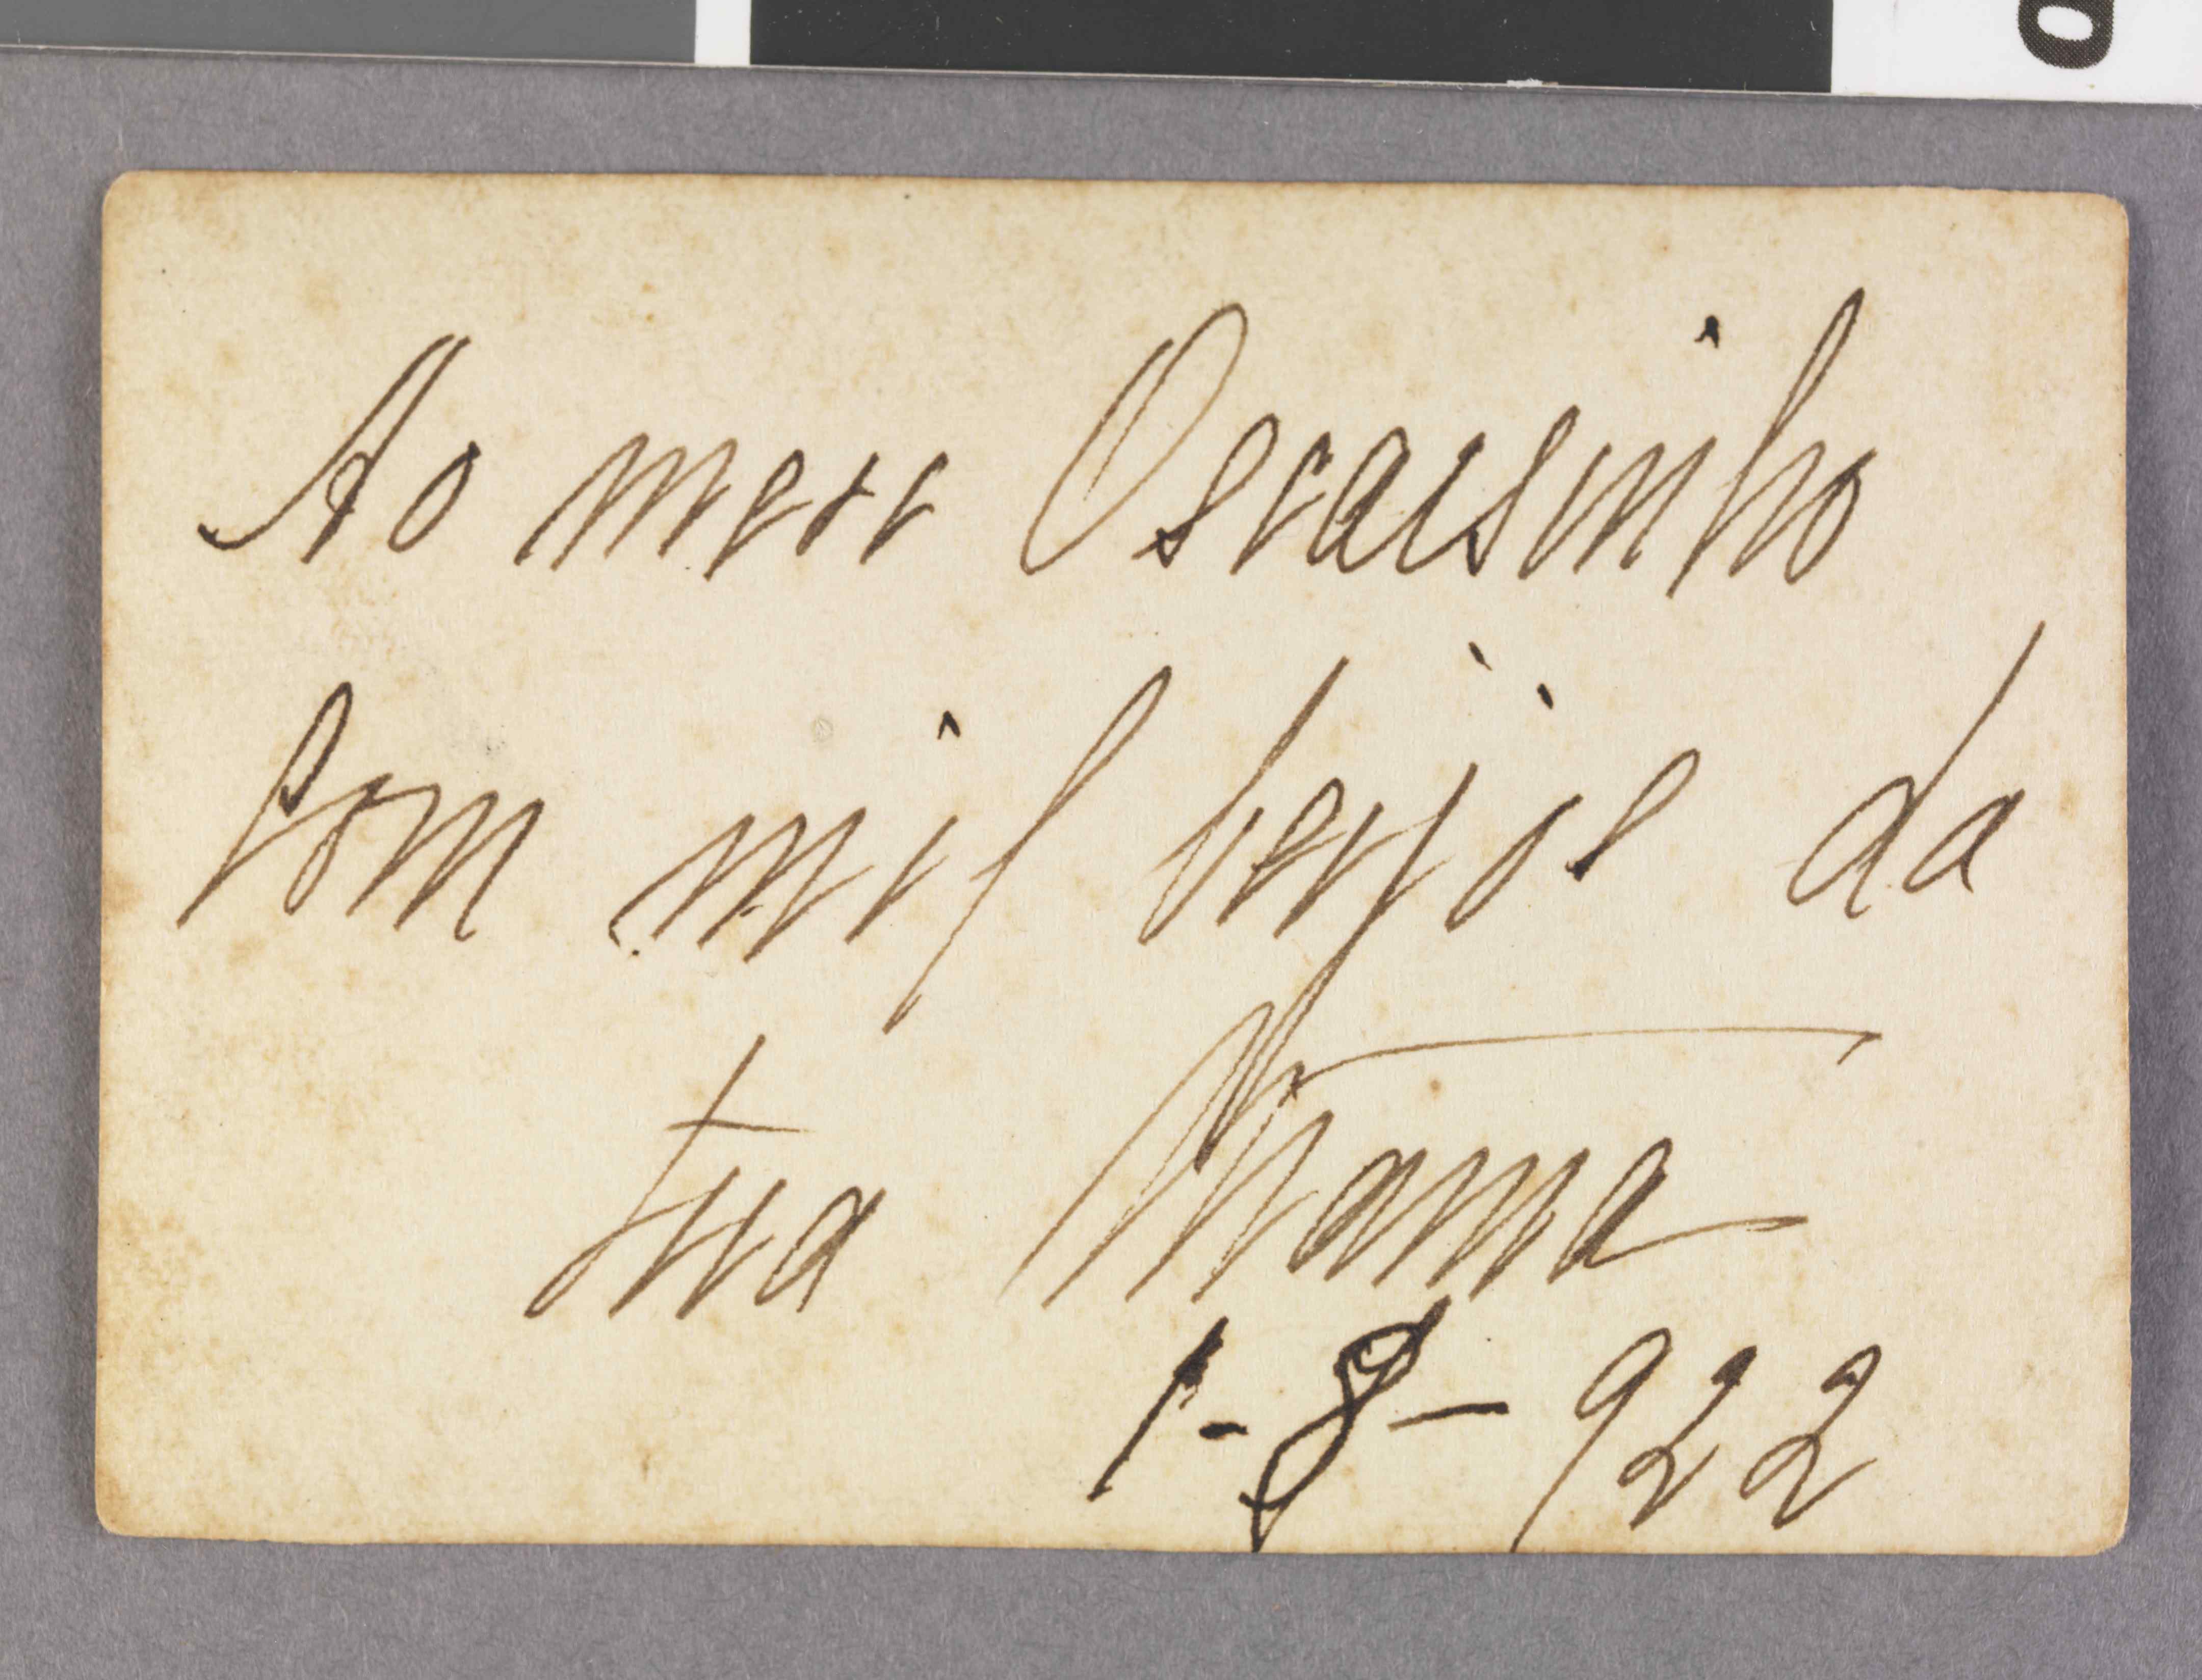 Ao meu Oscarsinho
Com mil beijos da
tua Mama
1-8-922